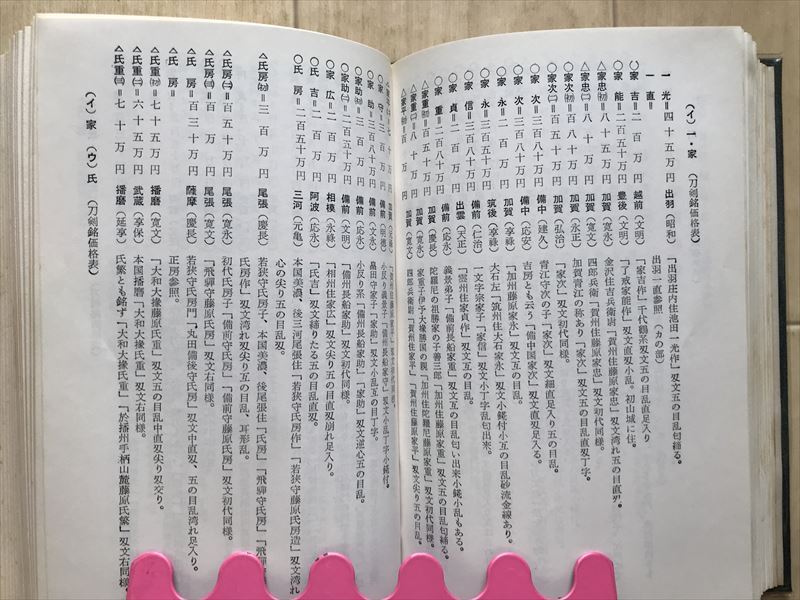 (イ) 一・家 (刀剣銘価格表)
一 光=四十五万円 出羽(昭和) 「出羽庄内住池田一光作」刄文五の目乱匂締る。
一 直= 出羽一直参照(カの部)
〇家 吉=二百万円 越前(文明) 「家吉作」千代鶴系刄文五の目乱直足入り
〇家 能=二百五十万円 豊後(文明) 「了戒家能作」刄文直刄小乱。初山城に住。
△家忠㈠=八十五万円 加賀(寛文) 金沢住吉兵衛「賀州住藤原家忠」刄文湾れ五の目直刄。
△家忠㈡=八十万円 加賀 四郎兵衛「賀州住藤原家忠」刄文初代同様。
〇家次㈠=百八十万円 加賀(永正) 加賀青江の称あり「家次」刄文五の目乱直刄丁字。
〇家次㈡=百五十万円 加賀(弘治) 「家次」刄文初代同様。
〇家 次=三百五十万円 備中(建久) 青江守次の子「家次」刄文細直足入り五の目乱。
〇家 次=三百万円 備中(応安) 吉房とも云う「備中国家次」刄文直刄足入る。
〇家 永=百五十万円 加賀(享禄) 「加州藤原家永」刄文五の目乱砂流金線あり。
〇家 永=二百万円 筑後(享禄) 大石左「筑州住大石家永」刄文小錵付小互の目乱
〇家 信=三百八十万円 備前(仁治) 「文字宗家子「家信」刄文小丁字乱匂出来。
〇家 貞=二百万円 出雲(天正) 「雲州住家貞作」刄文互の目乱。
〇家 重=二百八十万円 備前(応永) 義景弟子「備前長船家重」刄文互の目乱匂い出来小錵小乱もある。
△家重㈠=二百万円 加賀(慶長) 陀羅尼の祖勝家の子善三郎「加州住藤原家重」
△家重㈡=八十万円 加賀(寛文)
△家平㈠=百万円 加賀(寛文) 四郎兵衛尉「賀州住家平」「賀州住藤原家平」刄文尖り五の目乱。
〇家 守=三百万円 備前(明徳) 小反り義景子「備州長船家守」刄文小乱丁字小錵付。
〇家 助=三百八十万円 備前(文永) 畠田守家子「家助」刄文小乱互の目丁字。
〇家助㈠=三百五十万円 備前(応永) 小反り系「備州長船家助」「家助」刄文逆心五の目乱。
〇家助㈡=二百五十万円 備前(文明) 「備州長船家助」刄文初代同様。
〇家 広=二百万円 相模(永禄) 「相州住家広」刄文尖り五の目直刄崩れ足入り。
〇氏 吉=二百万円 阿波(応永) 「氏吉」刄文締りたる五の目乱直刄。
〇氏 房=二百五十万円 三河(元亀) 本国美濃、後三河尾張住「若狭守氏房作」「若狭守藤原氏房造」刄文湾れ
心の尖り五の目乱刄。
△氏房㈠=三百万円 尾張(慶長) 若狭守氏房子、本国美濃、後尾張住「氏房」「飛騨守氏房」「飛騨守
氏房作」刄文湾れ刄尖り互の目乱、耳形乱。
△氏房㈡=百五十万円 尾張(寛永) 初代氏房子「備前守氏房」「備前守藤原氏房」刄文初代同様。
△氏房㈢=百万円 尾張(寛文) 「飛騨守藤原氏房」刄文右同様。
△氏 房=百三十万円 薩摩(慶長) 若狭守氏房門「丸田備後守氏房」刄文中直刄、五の目湾れ足入り。
△氏 房= 正房参照。
△氏重㈠=七十五万円 播磨(寛文) 「大和大掾藤原氏重」刄文五の目乱中直刄尖り刄交り。
△氏重㈡=六十五万円 武蔵(享保) 本国播磨「大和大掾氏重」刄文右同様。
△氏重㈢=七十万円 播磨(延享) 氏繁とも銘ず「大和大掾氏重」「於播州手柄山麓藤原氏繁」刄文右同様。
(イ)家 (ウ)氏 (刀剣銘価格表)